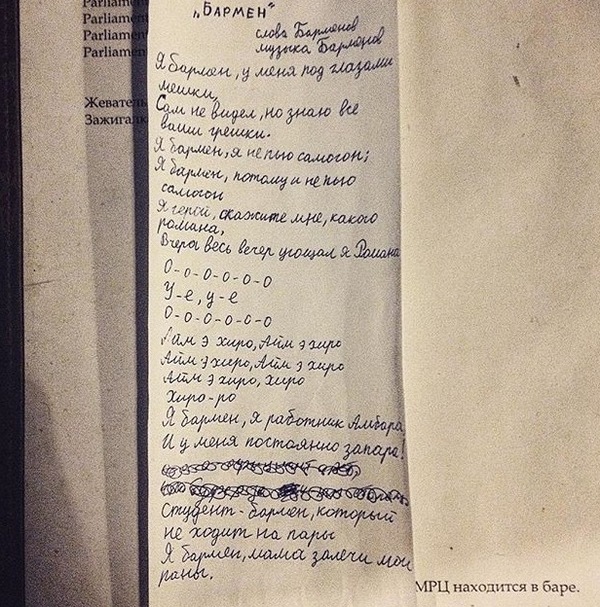 Parliamen
Parliamen
Parliamen
Parliamen
Жеватель
Зажигалк
„БАРМЕН"
слова Барменов
музыка Барменов
Я бармен, у меня под глазами
мешки,
Сам не видел, но знаю все
ваши грешки.
Я бармен, я не пью самогон;
Я бармен, потому и не пью
самогон
Я герой, скажите мне, какого
романа,
Вчера весь вечер угощал я Романа
О-о-о-о-о-о
У-е, у-е
О-о-о-о-о-о
Айм э хиро, Айм э хиро
Айм э хиро, Айм э хиро
Айм э хиро, хиро
Хиро-ро
Я бармен, я работник Амбара
И у меня постоянно запара!
Студент-бармен, который
не ходит на пары
Я бармен, мама залечи мои
раны.
МРЦ находится в баре.